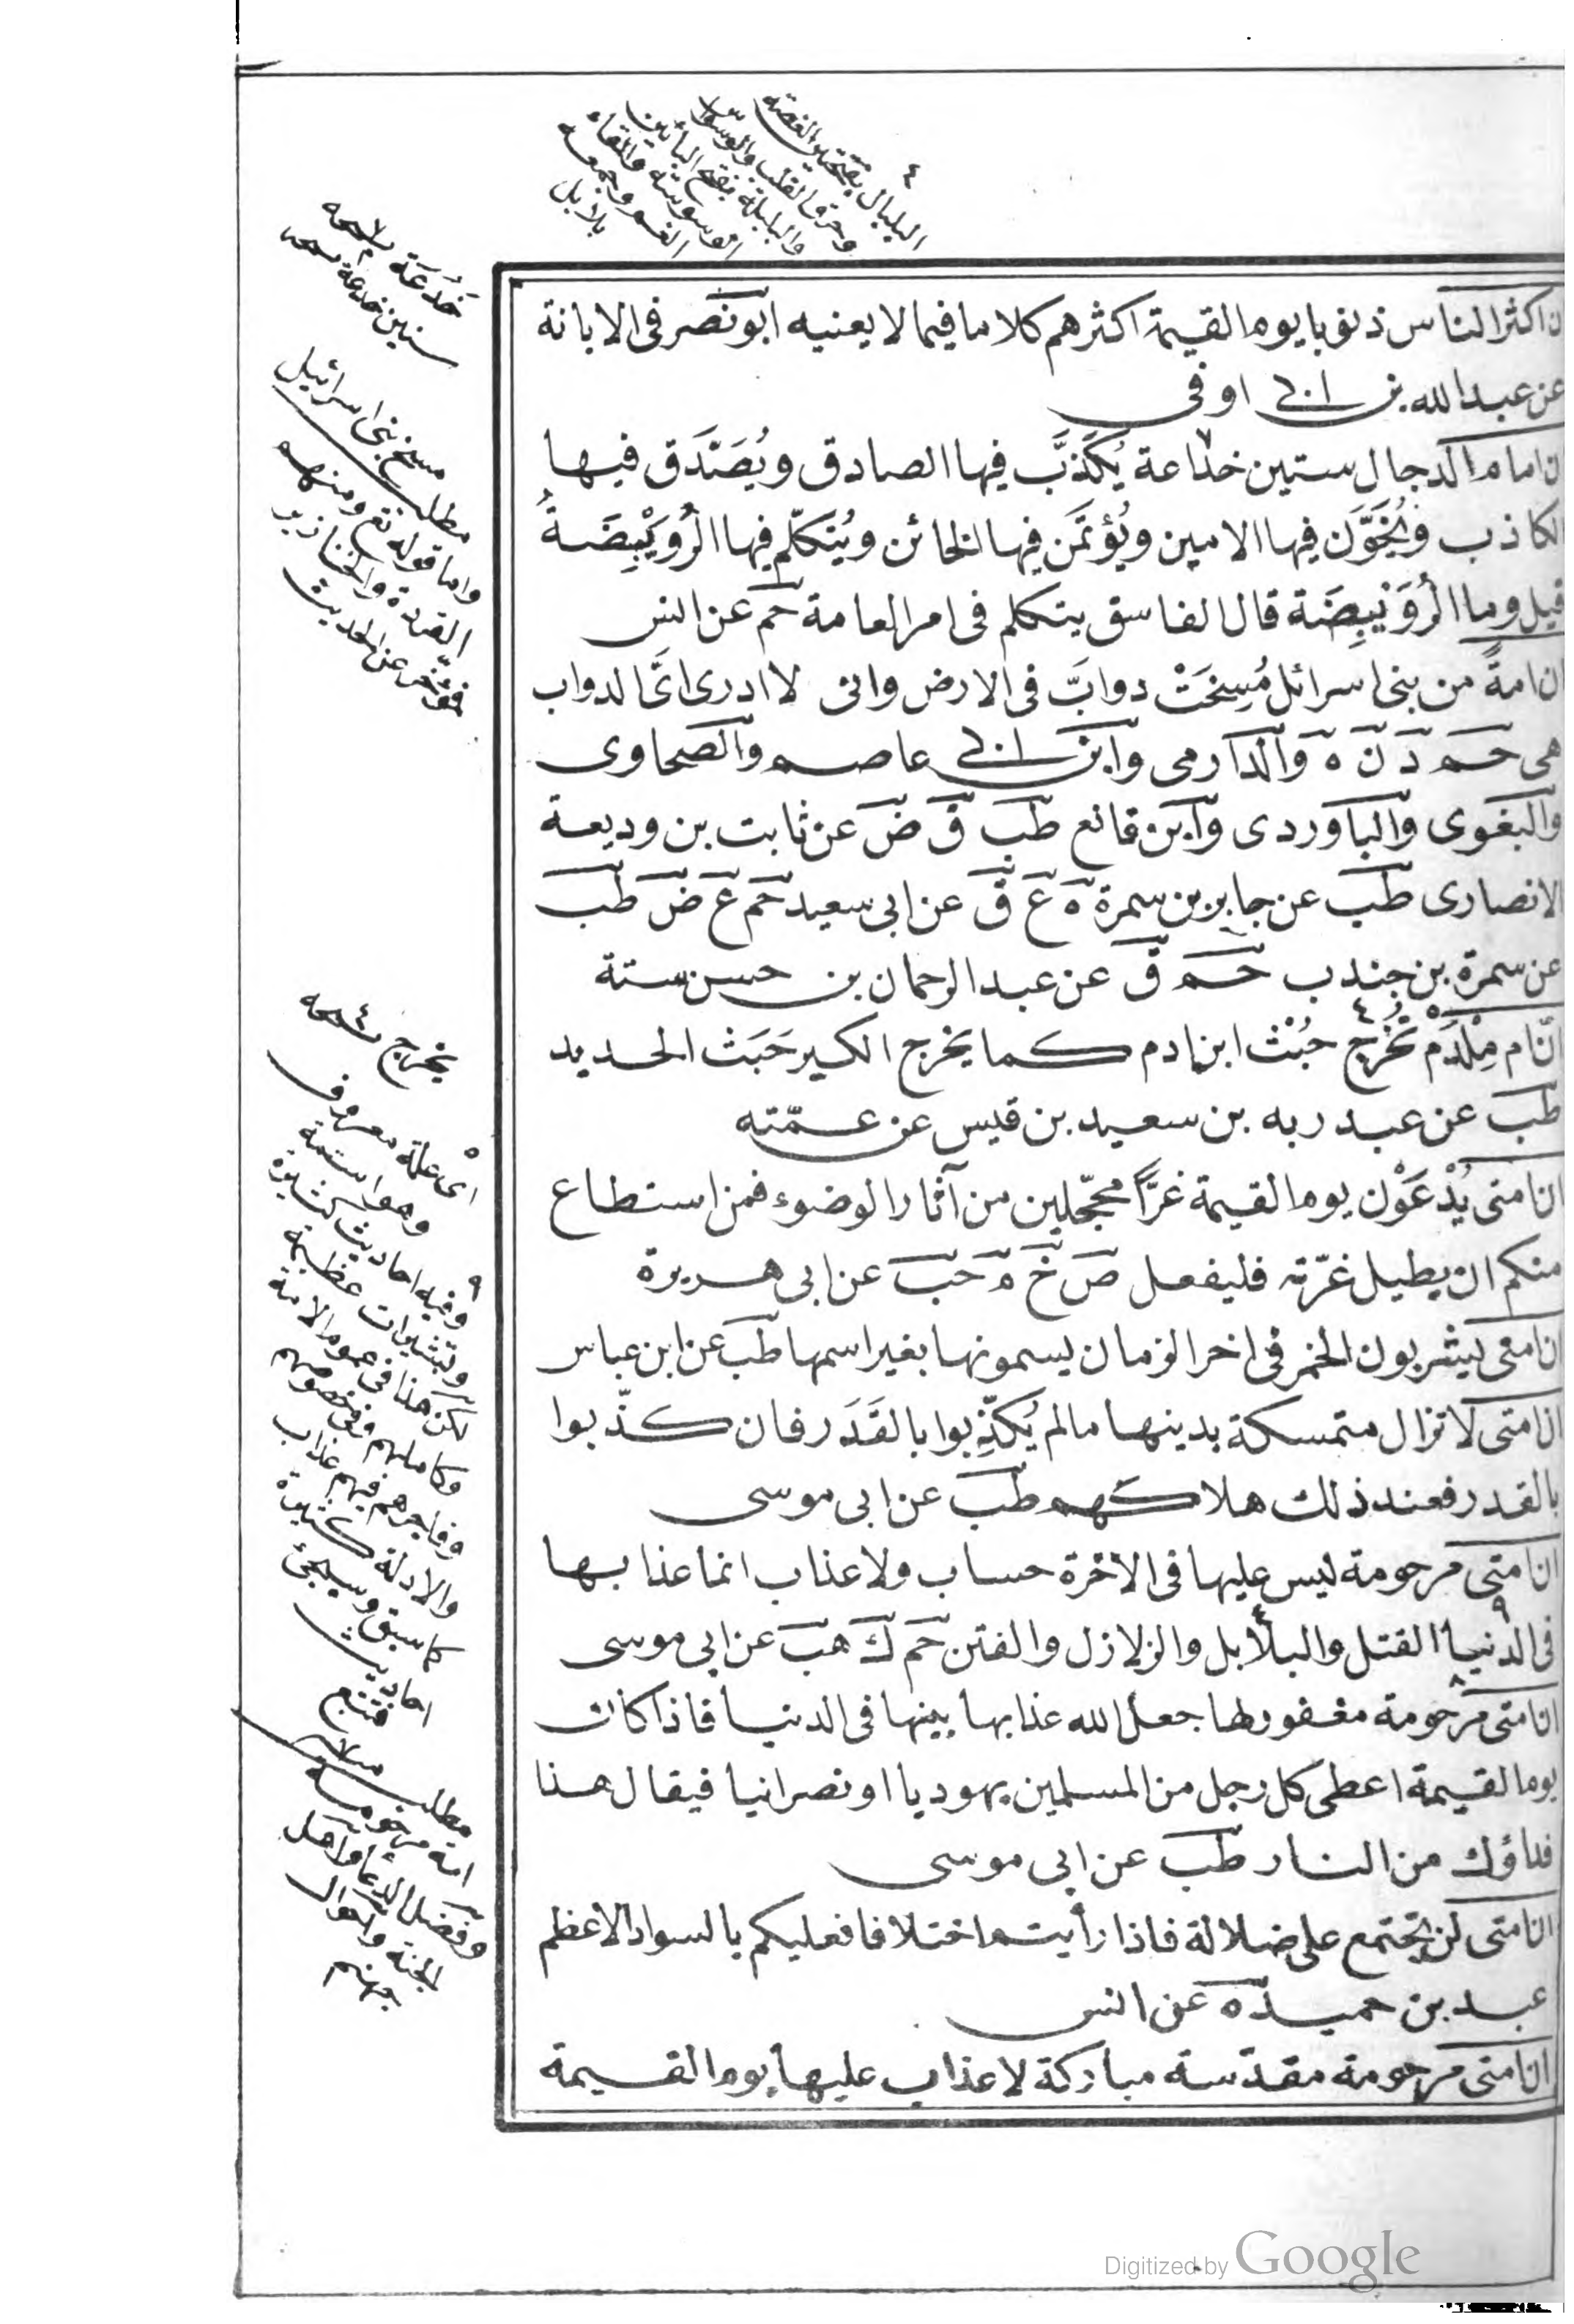 ان اكثر الناس ذنوبا يوم القيمة اكثرهم كلاما فيما لا يعنيه ابو نصر فى الابانة
عن عبد الله بن ابى اوفى
ان امام الدجال ستين خداعة يُكَذَّب فيها الصادق ويُصَدَّق فيها
الكاذب ويُخَوَّن فيها الامين ويُؤتَمَن فيها الخائن ويُتَكلّم فيها الرُوَيْبِضَةُ
قيل وما الرُوَيْبِضَة قال الفاسق يتكلم فى امر العامة حم عن انس
ان امةً من بنى اسرائل مُسِخَتْ دوابَّ فى الارض وانى لا ادرى اىَّ الدواب
هى حم د ن ه والدارمى وابن ابى عاصم والصحاوى
والبغوى والباوردى وابن قانع طب ق ض عن ثابت بن وديعة
الانصارى طب عن جابر بن سمرة ه ع ق عن ابى سعيد حم ع ض طب
عن سمرة بن جندب حم ق عن عبد الرحمان بن حسن ستة
انّ ام مِلْدَم تُخْرِج خُبْث ابن ادم كما يخرج الكير خَبَث الحديد
طب عن عبد ربه بن سعيد بن قيس عن عمّته
ان امتى يُدْعَوْن يوم القيمة غرًّا محجّلين من آثار الوضوء فمن استطاع
منكم ان يطيل غرّته فليفعل ص خ م حب عن ابى هريرة
ان امتى ليشربون الخمر فى اخر الزمان يسمونها بغير اسمها طب عن ابن عباس
ان امتى لا تزال متمسكة بدينها مالم يُكَذِّبوا بالقَدَر فان كذّبوا
بالقدر فعند ذلك هلاكهم طب عن ابى موسى
ان امتى مرحومة ليس عليها فى الآخرة حساب ولا عذاب انما عذابها
فى الدنيا القتل والبلابل والزلازل والفتن حم ك هب عن ابى موسى
ان امتى مرحومة مغفور لها جعل الله عذابها بينها فى الدنيا فاذا كان
يوم القيمة اعطى كل رجل من المسلمين يهوديا او نصرانيا فيقال هذا
فداؤك من النار طب عن ابى موسى
ان امتى لن تجتمع على ضلالة فاذا رأيتم اختلافا فعليكم بالسواد الاعظم
عبد بن حميد ه عن انس
ان امتى مرحومة مقدّسة مباركة لا عذاب عليها يوم القيمة
٤
البلبال بفتحتين الغصة
وحرق القلب والوسواس
والبلبلة بفتح البائين
الوسوسة والقاء
الغم وجمعه
بلابل
خَدُعَة نسخه
سنين خدعة نسخه
مسخ بنى اسرائيل
مطلب
واما قوله تع ومنهم
القردة والخنازير
فمؤخر عن الحديث
يخرج نسخه
اى علة معروف
وهو استمة
وفيه احاديث كثيرة
وتبشيرات عظيمة
لكن هذا فى عموم الامة
وكاملهم وفى خصوصهم
وفاجرهم فيهم عذاب
والادلة كثيرة
كما سبق وسيجئ
احاديث
فتتبع
مطلب
امة مرحومة
وفضل الدعاء واهل
الجنة واحوال
جهنم
Digitized by Google